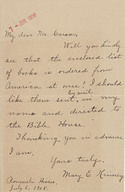 My dear Mr. Carson,
Will you kindly
see that the enclosed list
of books is ordered from
America at once? I should
like them sent, in my
name and directed to
the Bible House.
Thanking you in advance
I am,
Yours truly,
Mary E. Kinney
July 6, 1908.